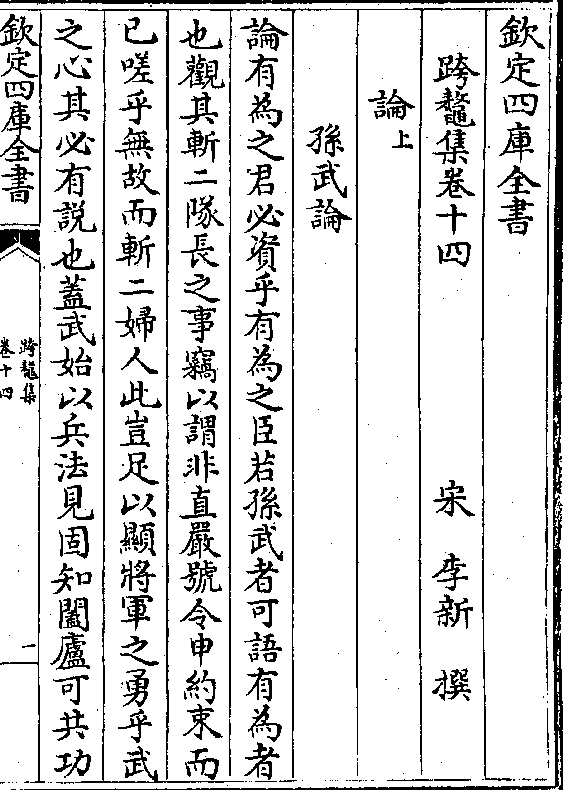 欽定四庫全書
跨鼇集卷十四
宋 李新 撰
論上
孫武論
論有為之君必資乎有為之臣若孫武者可語有為者
也觀其斬二隊長之事竊以謂非直嚴號令申約束而
已嗟乎無故而斬二婦人此豈足以顯將軍之勇乎武
之心其必有説也蓋武始以兵法見固知闔廬可共功
欽定四庫全書
跨鼇集
卷十四
一